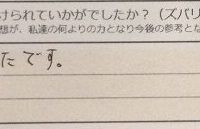 けられていかがでしたか？（ズバリ
想が、私達の何よりの力となり今後の参考とな
たです。